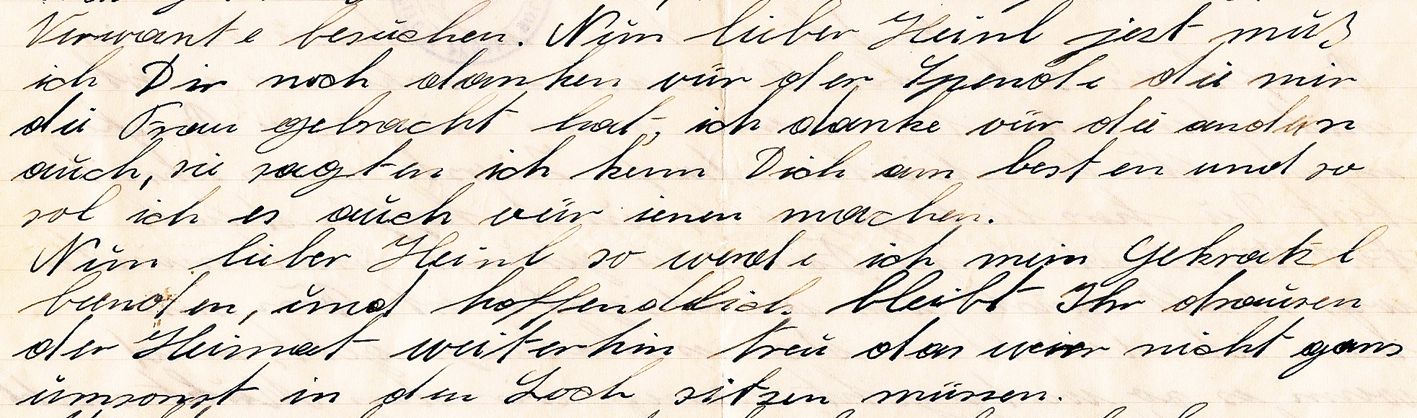 Verwante besuchen. Nun lieber Heinl jest muß
ich Dir noch danken vür der Spende die mir
die Frau gebracht hat, ich danke vür die andern
auch, sie sagten ich kenn Dich am besten und so
sol ich es auch vür ienen machen.
Nun lieber Heinl so werde ich mein Gekratzl
benden, und hoffendlich bleibt Ihr drausen
der Heimat weiterhin treu das wier nicht gans
umsonst in den Loch sitzen müssen.